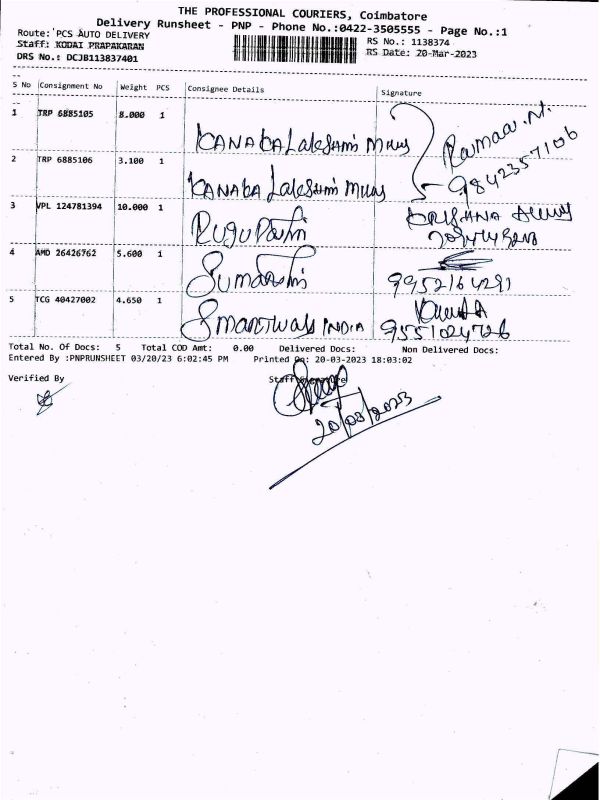 THE PROFESSIONAL COURIERS, Coimbatore
Delivery Runsheet - PNP - Phone No.:0422-3505555 - Page No.:1
Route: PCS AUTO DELIVERY
Staff: KODAI PRAPAKARAN
DRS No.: DCJB113837401
RS No.: 1138374
RS Date: 20-Mar-2023
S No Consignment No Weight PCS Consignee Details Signature
1 TRP 6885105 8.000 1 KANAKA Lakshmi Mills
9842357106
2 TRP 6885106 3.100 1 KANAKA Lakshmi Mills
3 VPL 124781394 10.000 1 KRISHNA
4 AMD 26426762 5.600 1 9952164291
5 TCG 40427002 4.650 1 INDIA 9551024726
Total No. Of Docs: 5 Total COD Amt: 0.00 Delivered Docs: Non Delivered Docs:
Entered By :PNPRUNSHEET 03/20/23 6:02:45 PM Printed On: 20-03-2023 18:03:02
Verified By Staff Signature
20/03/2023